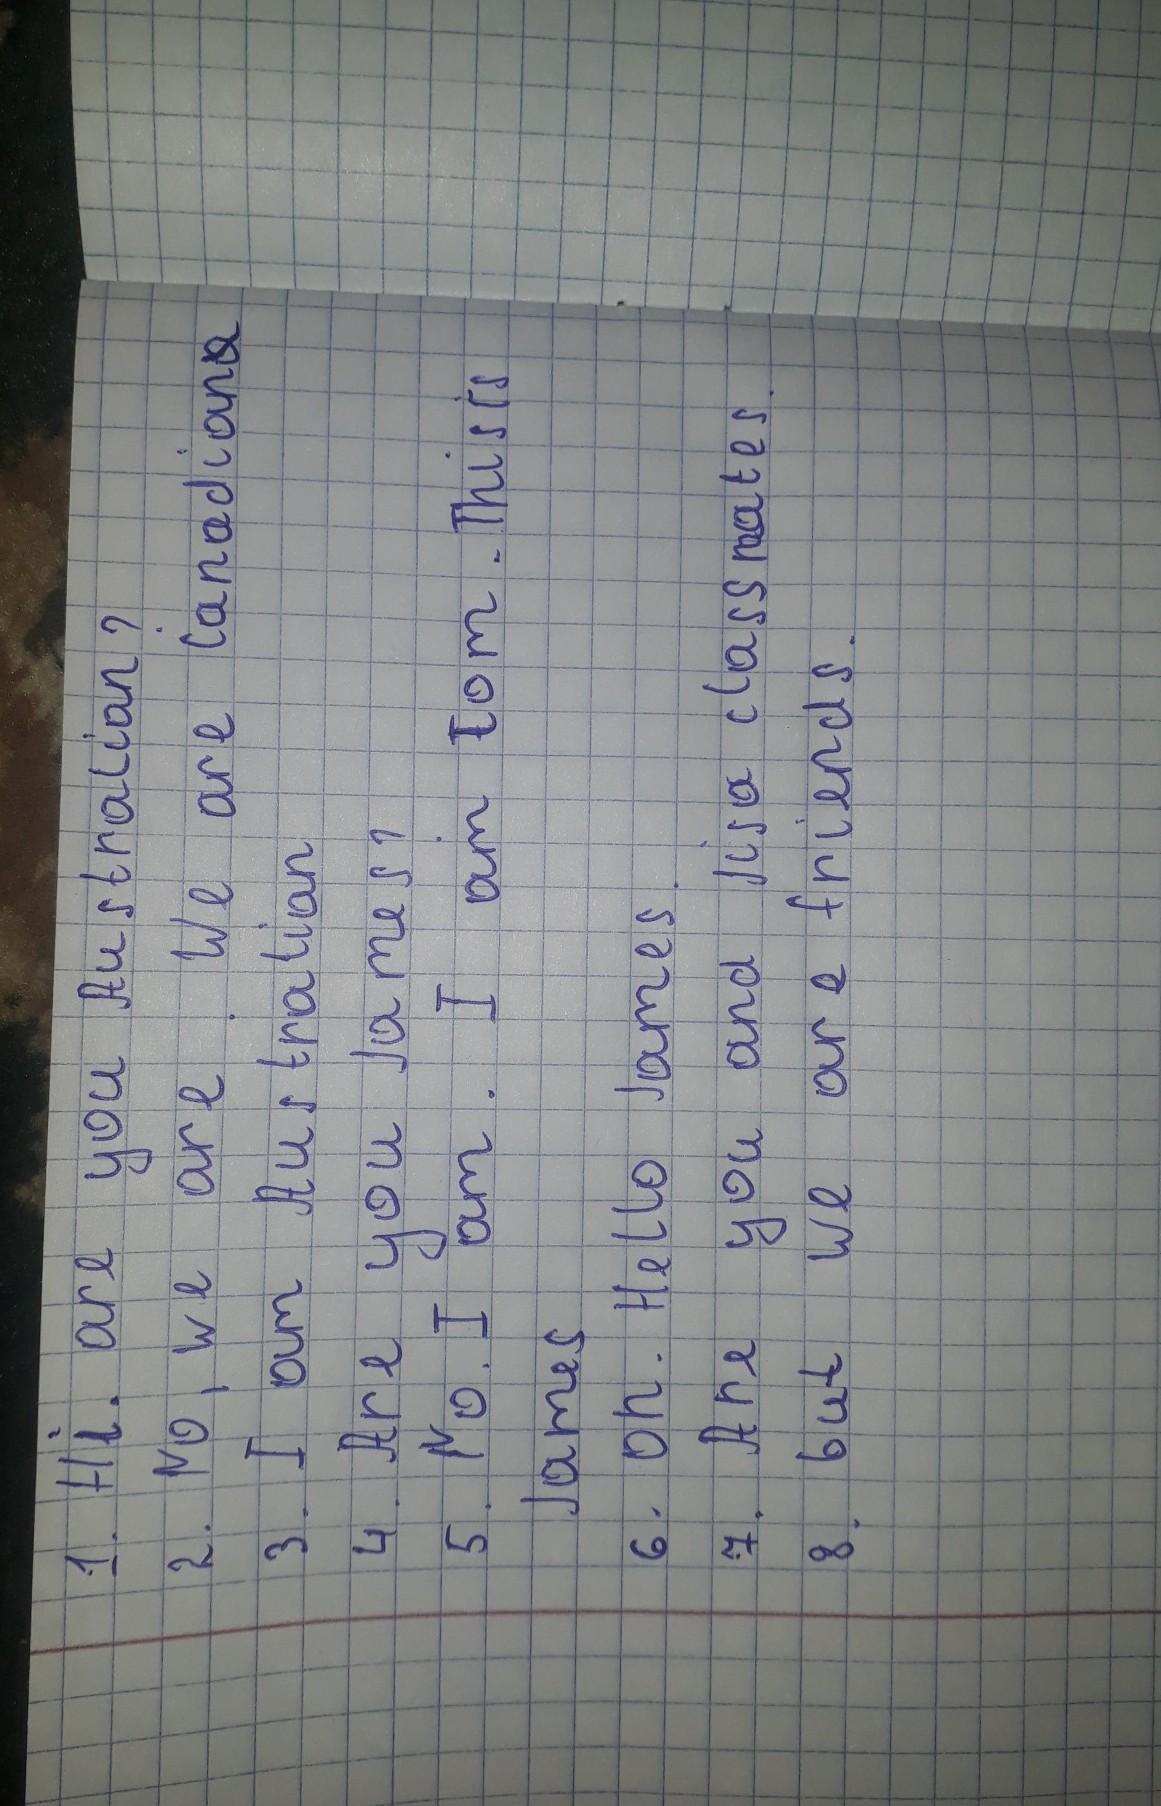 1. Hi. are you Australian?
2. No, we are. We are Canadiana
3. I am Australian
4. Are you James?
5. No. I am. I aim Tom. This is
James
6. Oh. Hello James.
7. Are you and Lisa classmates.
8. but we are friends.